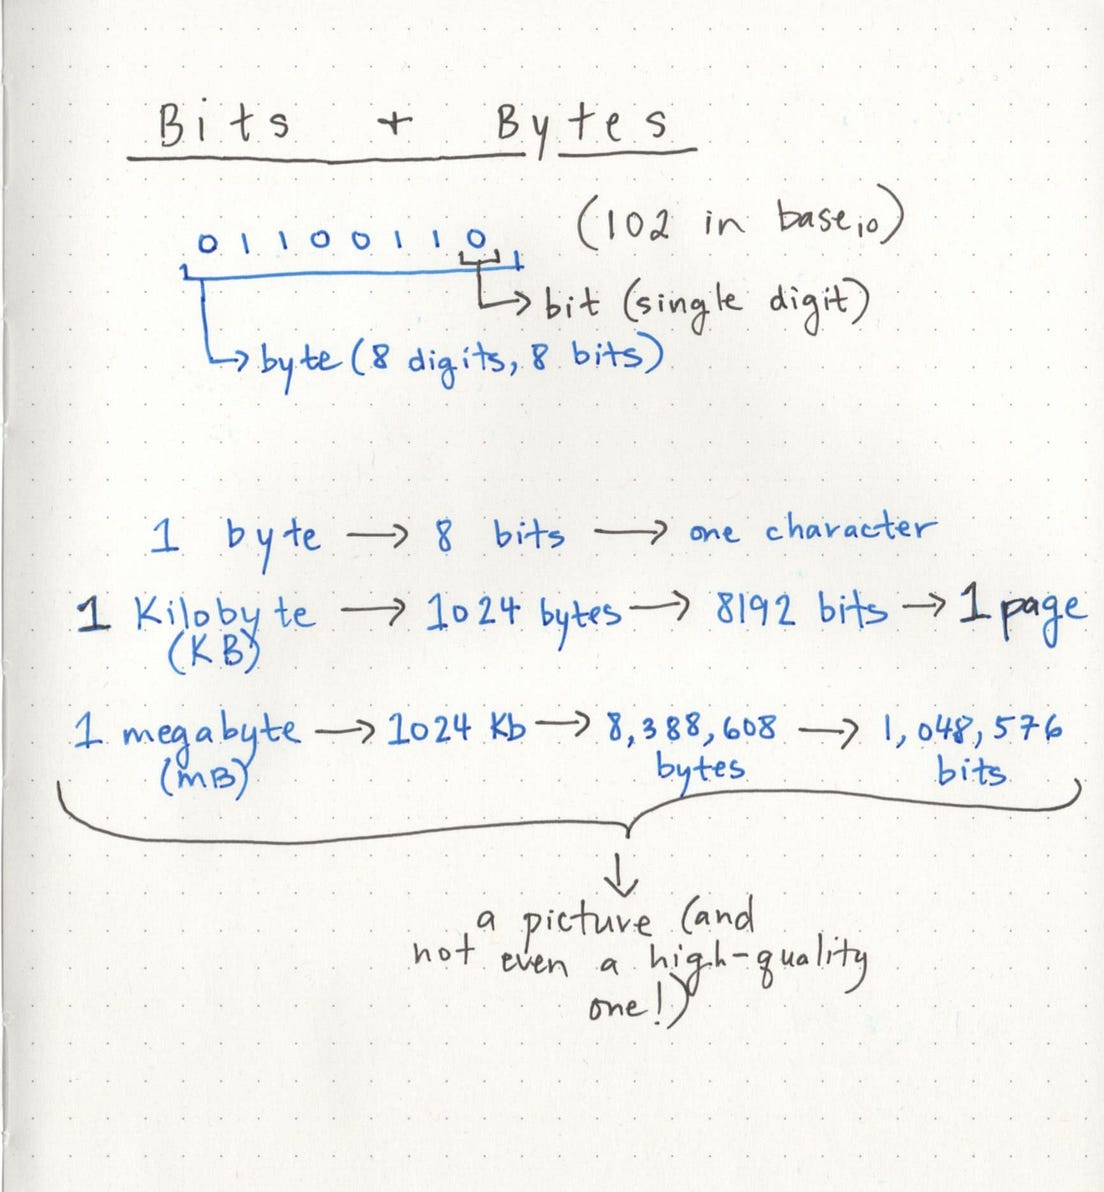 Bits + Bytes
01100110 (102 in base10)
bit (single digit)
byte (8 digits, 8 bits)
1 byte → 8 bits → one character
1 Kilobyte → 1024 bytes → 8192 bits → 1 page
(KB)
1 megabyte → 1024 Kb → 8,388,608 → 1,048,576
(MB) bytes bits
a picture (and
not even a high-quality
one!)